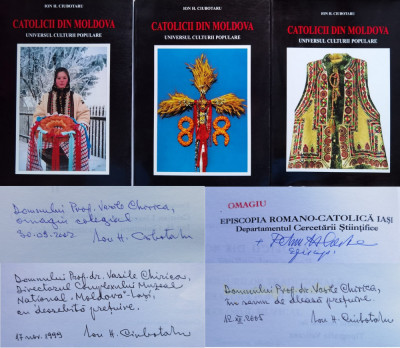 ION H. CIUBOTARU
CATOLICII DIN MOLDOVA
UNIVERSUL CULTURII POPULARE
ION H. CIUBOTARU
CATOLICII DIN MOLDOVA
UNIVERSUL CULTURII POPULARE
ION H. CIUBOTARU
CATOLICII DIN MOLDOVA
UNIVERSUL CULTURII POPULARE
Domnului Prof. Vasile Chirica,
omagiu colegial
30.09.2002 Ion H. Ciubotaru
OMAGIU
EPISCOPIA ROMANO-CATOLICĂ IAŞI
Departamentul Cercetării Ştiinţifice
+ Petru
Domnului Prof. dr. Vasile Chirica,
Directorul Complexului Muzeal
Naţional „Moldova" - Iaşi,
cu deosebită preţuire.
17 nov. 1999 Ion H. Ciubotaru
Domnului Prof. dr. Vasile Chirica,
în semn de aleasă preţuire.
2005 Ion H. Ciubotaru